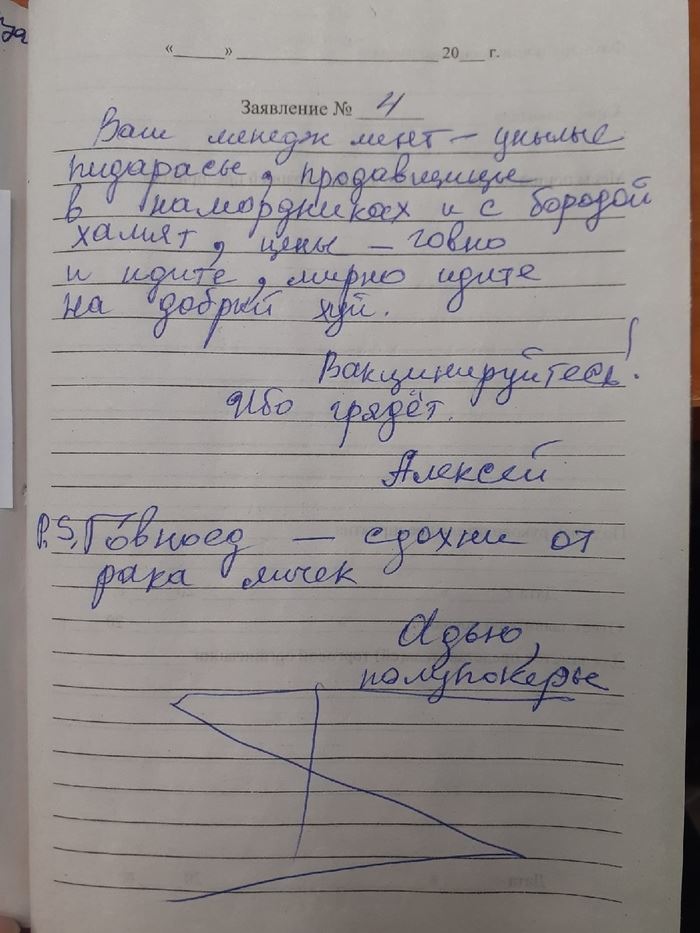 «____» ____________________ 20__ г.
Заявление № 4
Ваш менеджмент – унылые
пидарасы, продавщицы
в намордниках и с бородой
хамят, цены – говно
и идите, мирно идите
на добрый хуй.
Вакцинируйтесь!
Ибо грядёт.
Алексей
P.S. Говноед — сдохни от
рака яичек
Адью,
полупокеры